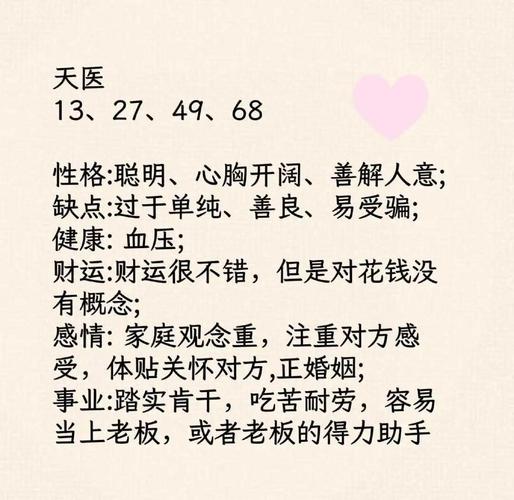 天医
13、27、49、68
性格:聪明、心胸开阔、善解人意;
缺点:过于单纯、善良、易受骗;
健康: 血压;
财运:财运很不错，但是对花钱没
有概念;
感情: 家庭观念重，注重对方感
受，体贴关怀对方,正婚姻;
事业:踏实肯干，吃苦耐劳，容易
当上老板，或者老板的得力助手